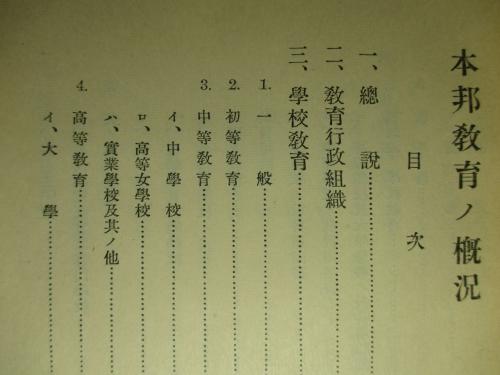 本邦敎育ノ槪況
目次
一、總說
二、敎育行政組織
三、學校敎育
1. 一般
2. 初等敎育
3. 中等敎育
イ、中學校
ロ、高等女學校
ハ、實業學校及其ノ他
4. 高等敎育
イ、大學